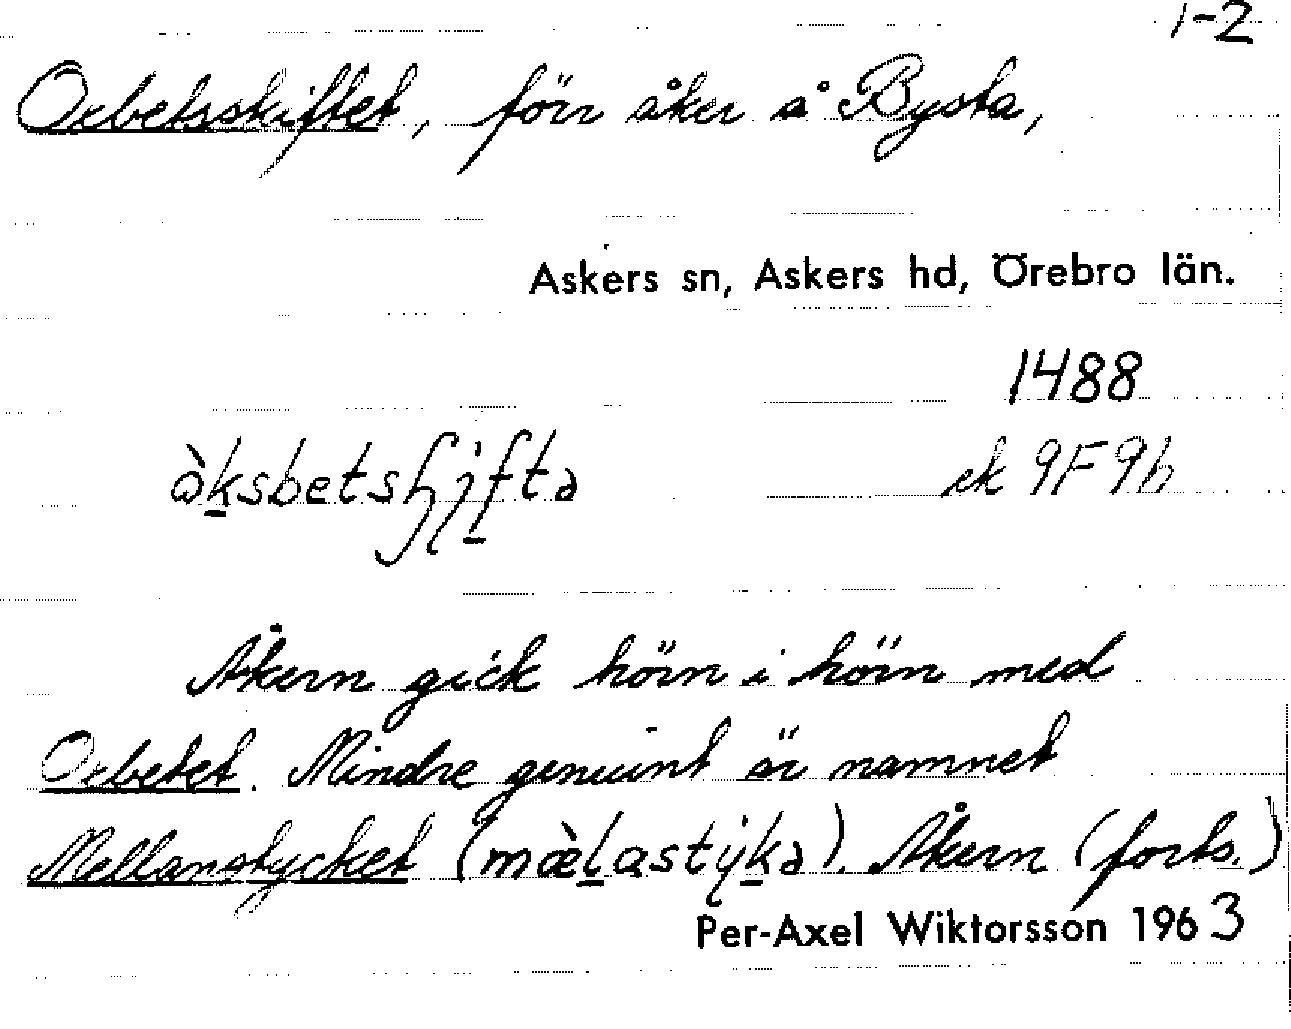 1-2
Oxbetsskiftet, förr åker å Bysta,
Askers sn, Askers hd, Örebro län.
1488
òk̲sbetsɧif̲tə ek 9F 9h
Åkern gick hörn i hörn med
Oxbetet. Mindre genuint är namnet
Mellanstycket (mæ̀l̲astyk̲ə). Åkern (forts.)
Per-Axel Wiktorsson 1963